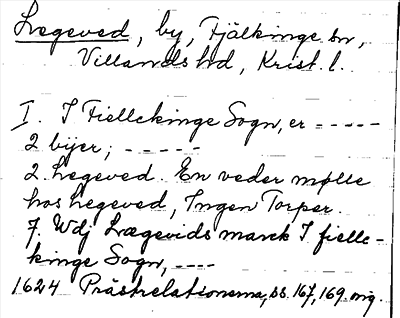 Lægeved, by, Fjälkinge sn,
Villands hd, Krist. l.
I. I Fiellekinge Sogn, er -----
2 byer; -----
2. Legeved. En veder mølle
hos Legeved, Ingen Torper.
7. Wdj Lægevids marck I fielle-
kinge Sogn, ----
1624 Prästrelationerna, ss. 167, 169. orig.